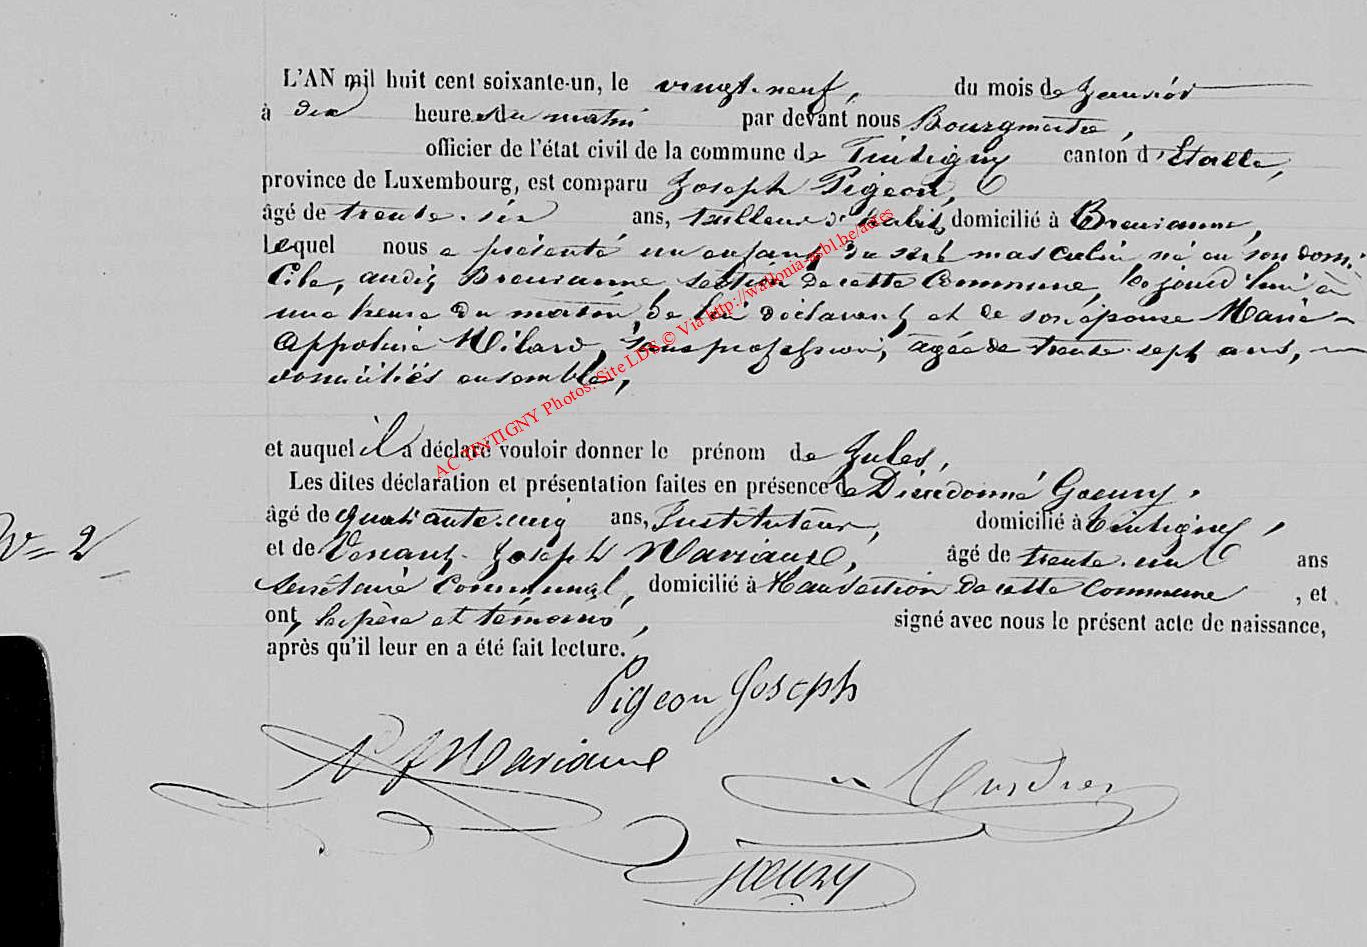 L'AN mil huit cent soixante-un, le vingt-neuf, du mois de Janvier
à dix heures du matin par devant nous Bourgmestre,
officier de l'état civil de la commune de Tintigny canton d'Etalle,
province de Luxembourg, est comparu Joseph Pigeon,
âgé de trente-six ans, tailleur d'habits, domicilié à Breuvanne,
lequel nous a présenté un enfant du sexe masculin né en son domi-
cile, audit Breuvanne section de cette Commune, ce jourd'hui à
une heure du matin, de lui déclarant et de son épouse Marie-
Appoline Milard, sans profession, agée de trente-sept ans,
domiciliés ensemble,
et auquel il a déclaré vouloir donner le prénom de Jules,
Les dites déclaration et présentation faites en présence de Dieudonné Goeury,
N° 2
âgé de quarante-cinq ans, Instituteur, domicilié à Tintigny,
et de Venant-Joseph Mariaule, âgé de trente-un ans
Secrétaire Communal, domicilié à Han section de cette Commune, et
ont, le père et témoins, signé avec nous le présent acte de naissance,
après qu'il leur en a été fait lecture.
Pigeon Joseph
VJ Mariaule
Goeury
AC TINTIGNY Photos: Site LDS © Via http://wallonia-asbl.be/actes